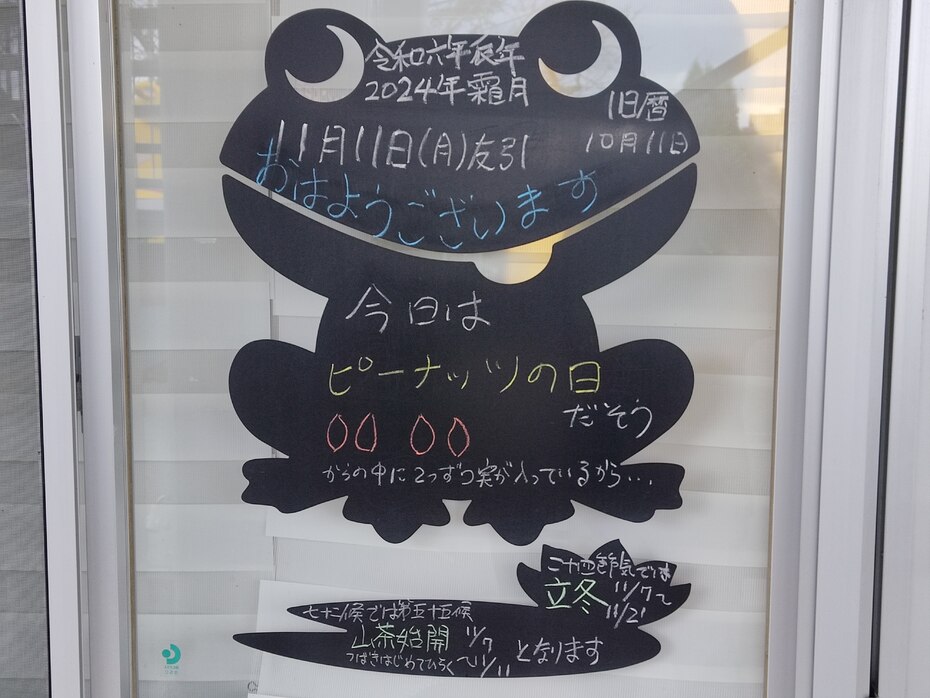 令和六年辰年
2024年霜月
旧暦
10月11日
11月11日(月)友引
おはようございます
今日は
ピーナッツの日
だそう
00 00
からの中に2つずつ実が入っているから...
二十四節気では
立冬 11/7〜
11/21
七十二候では第五十五候
山茶始開 11/7
つばきはじめてひらく 〜11/11
となります